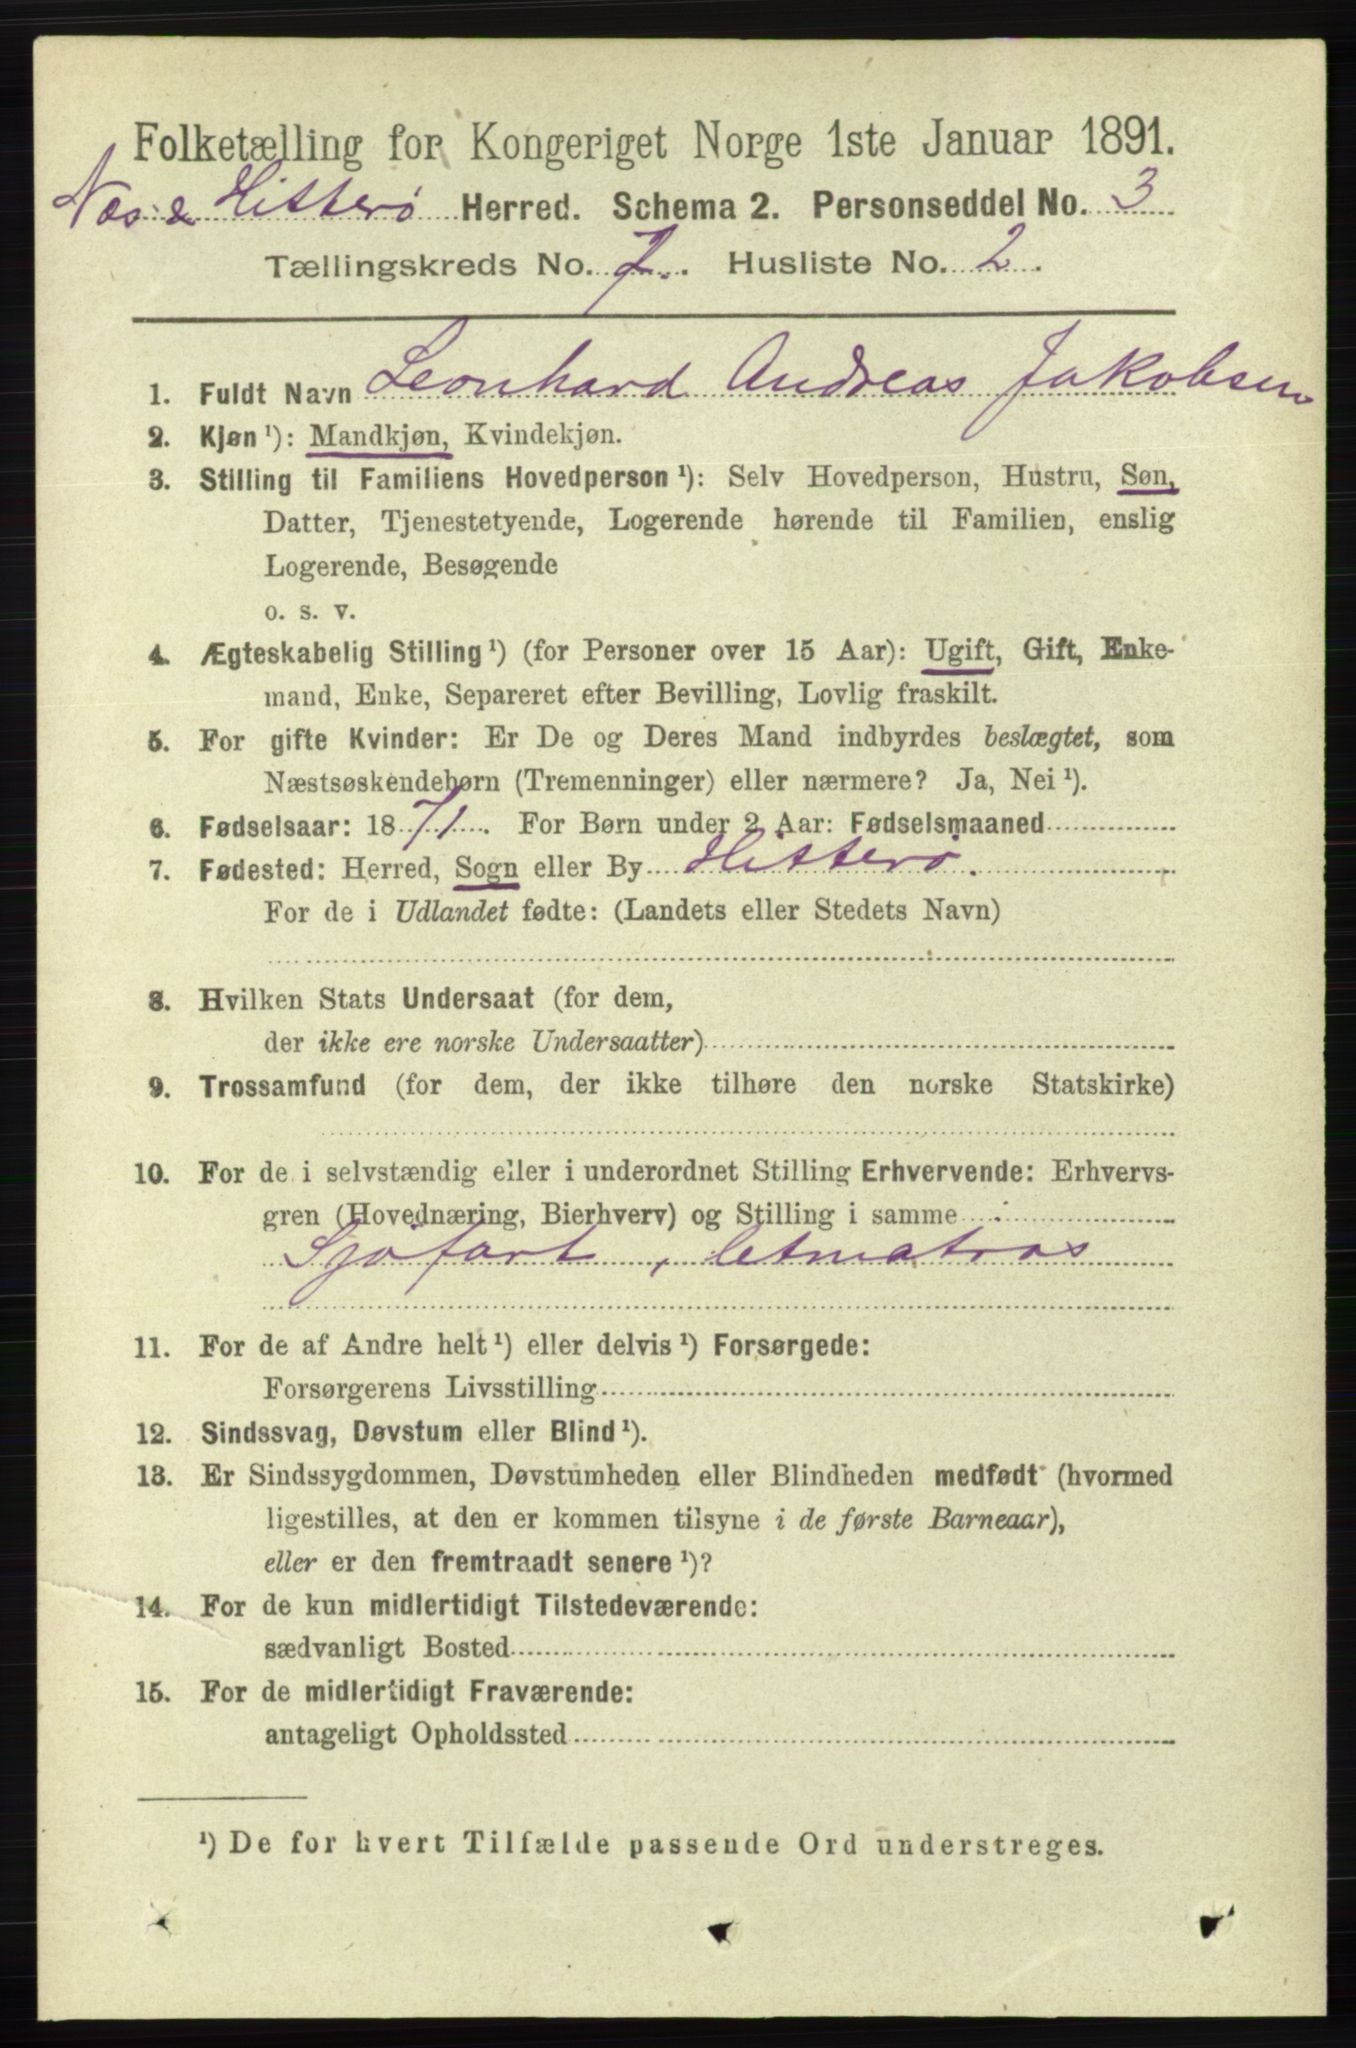 Folketælling for Kongeriget Norge 1ste Januar 1891.
Næs & Hitterø Herred. Schema 2. Personseddel No. 3
Tællingskreds No. 7. Husliste No. 2.
1. Fuldt Navn Leonhard Andreas Jakobsen
2. Kjøn ¹): Mandkjøn, Kvindekjøn.
3. Stilling til Familiens Hovedperson ¹): Selv Hovedperson, Hustru, Søn,
Datter, Tjenestetyende, Logerende hørende til Familien, enslig
Logerende, Besøgende
o. s. v.
4. Ægteskabelig Stilling ¹) (for Personer over 15 Aar): Ugift, Gift, Enke-
mand, Enke, Separeret efter Bevilling, Lovlig fraskilt.
5. For gifte Kvinder: Er De og Deres Mand indbyrdes beslægtet, som
Næstsøskendebørn (Tremenninger) eller nærmere? Ja, Nei ¹).
6. Fødselsaar: 1871. For Børn under 2 Aar: Fødselsmaaned
7. Fødested: Herred, Sogn eller By Hitterø.
For de i Udlandet fødte: (Landets eller Stedets Navn)
8. Hvilken Stats Undersaat (for dem,
der ikke ere norske Undersaatter)
9. Trossamfund (for dem, der ikke tilhøre den norske Statskirke)
10. For de i selvstændig eller i underordnet Stilling Erhvervende: Erhvervs-
gren (Hovednæring, Bierhverv) og Stilling i samme
Sjøfart, letmatros
11. For de af Andre helt ¹) eller delvis ¹) Forsørgede:
Forsørgerens Livsstilling
12. Sindssvag, Døvstum eller Blind ¹).
13. Er Sindssygdommen, Døvstumheden eller Blindheden medfødt (hvormed
ligestilles, at den er kommen tilsyne i de første Barneaar),
eller er den fremtraadt senere ¹)?
14. For de kun midlertidigt Tilstedeværende:
sædvanligt Bosted
15. For de midlertidigt Fraværende:
antageligt Opholdssted
¹) De for hvert Tilfælde passende Ord understreges.